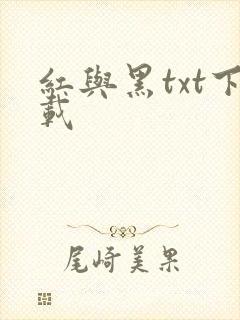 紅與黑txt下
載
尾崎美果